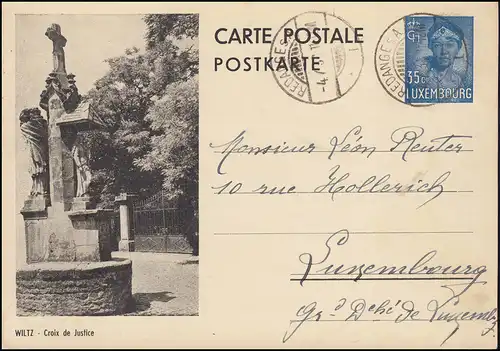 CARTE POSTALE
POSTKARTE
REDANGE S
-4.
REDANGE S. A
35 C
LUXEMBOURG
Monsieur Léon Reuter
10 rue Hollerich
Luxembourg
Gr.d Dché de Luxembg
WILTZ - Croix de Justice